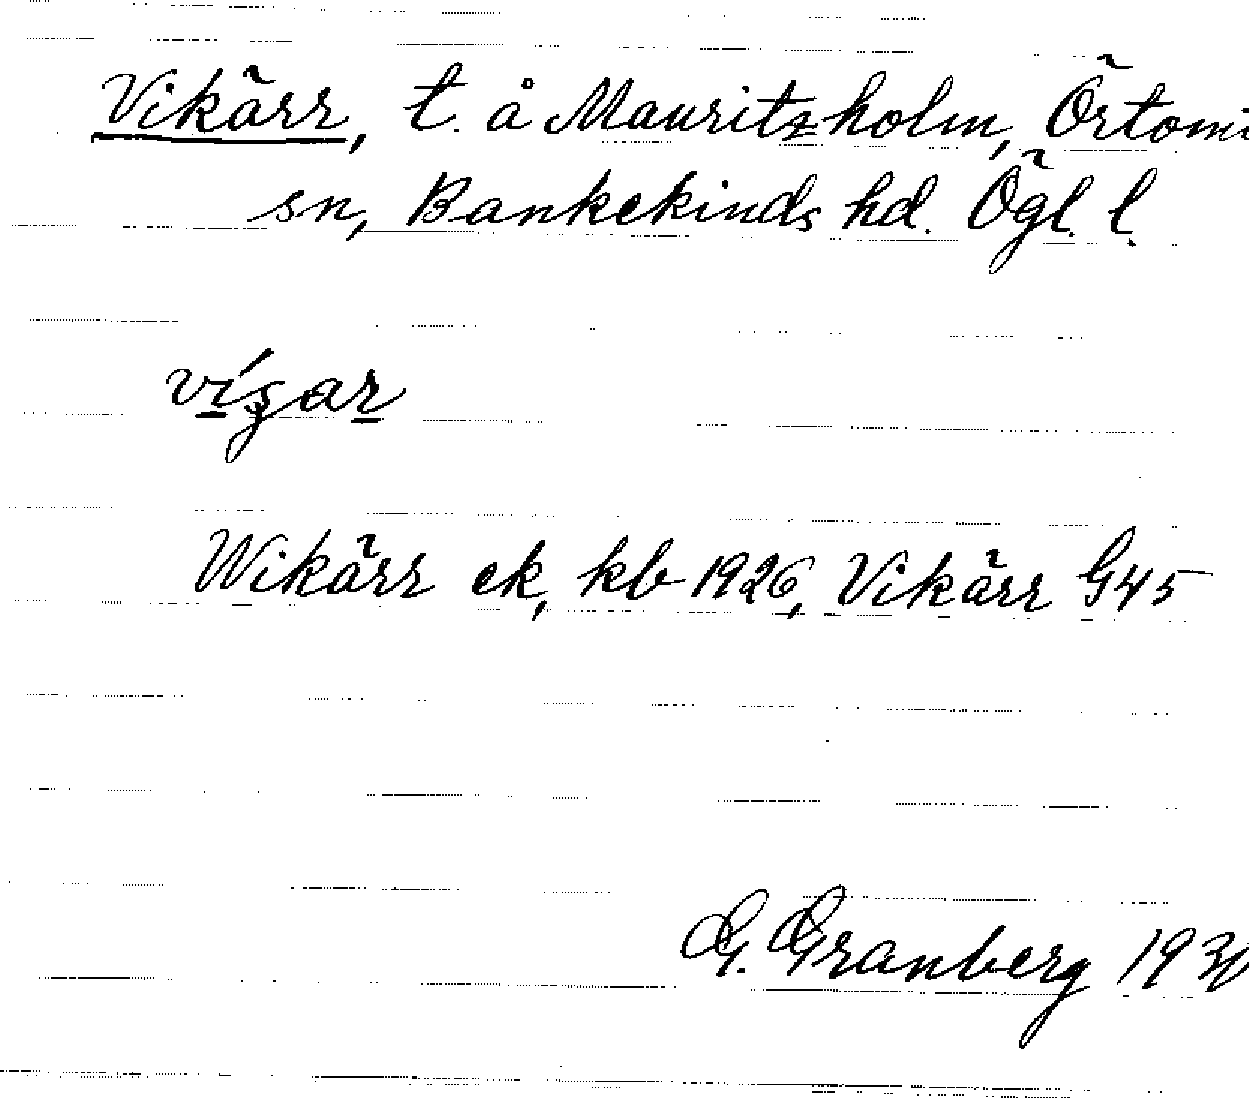 Vikärr, t. å Mauritzholm, Örtomt
sn, Bankekinds hd. Ögl. l.
Wikärr ek, kb 1926, Vikärr G45
G. Granberg 1930